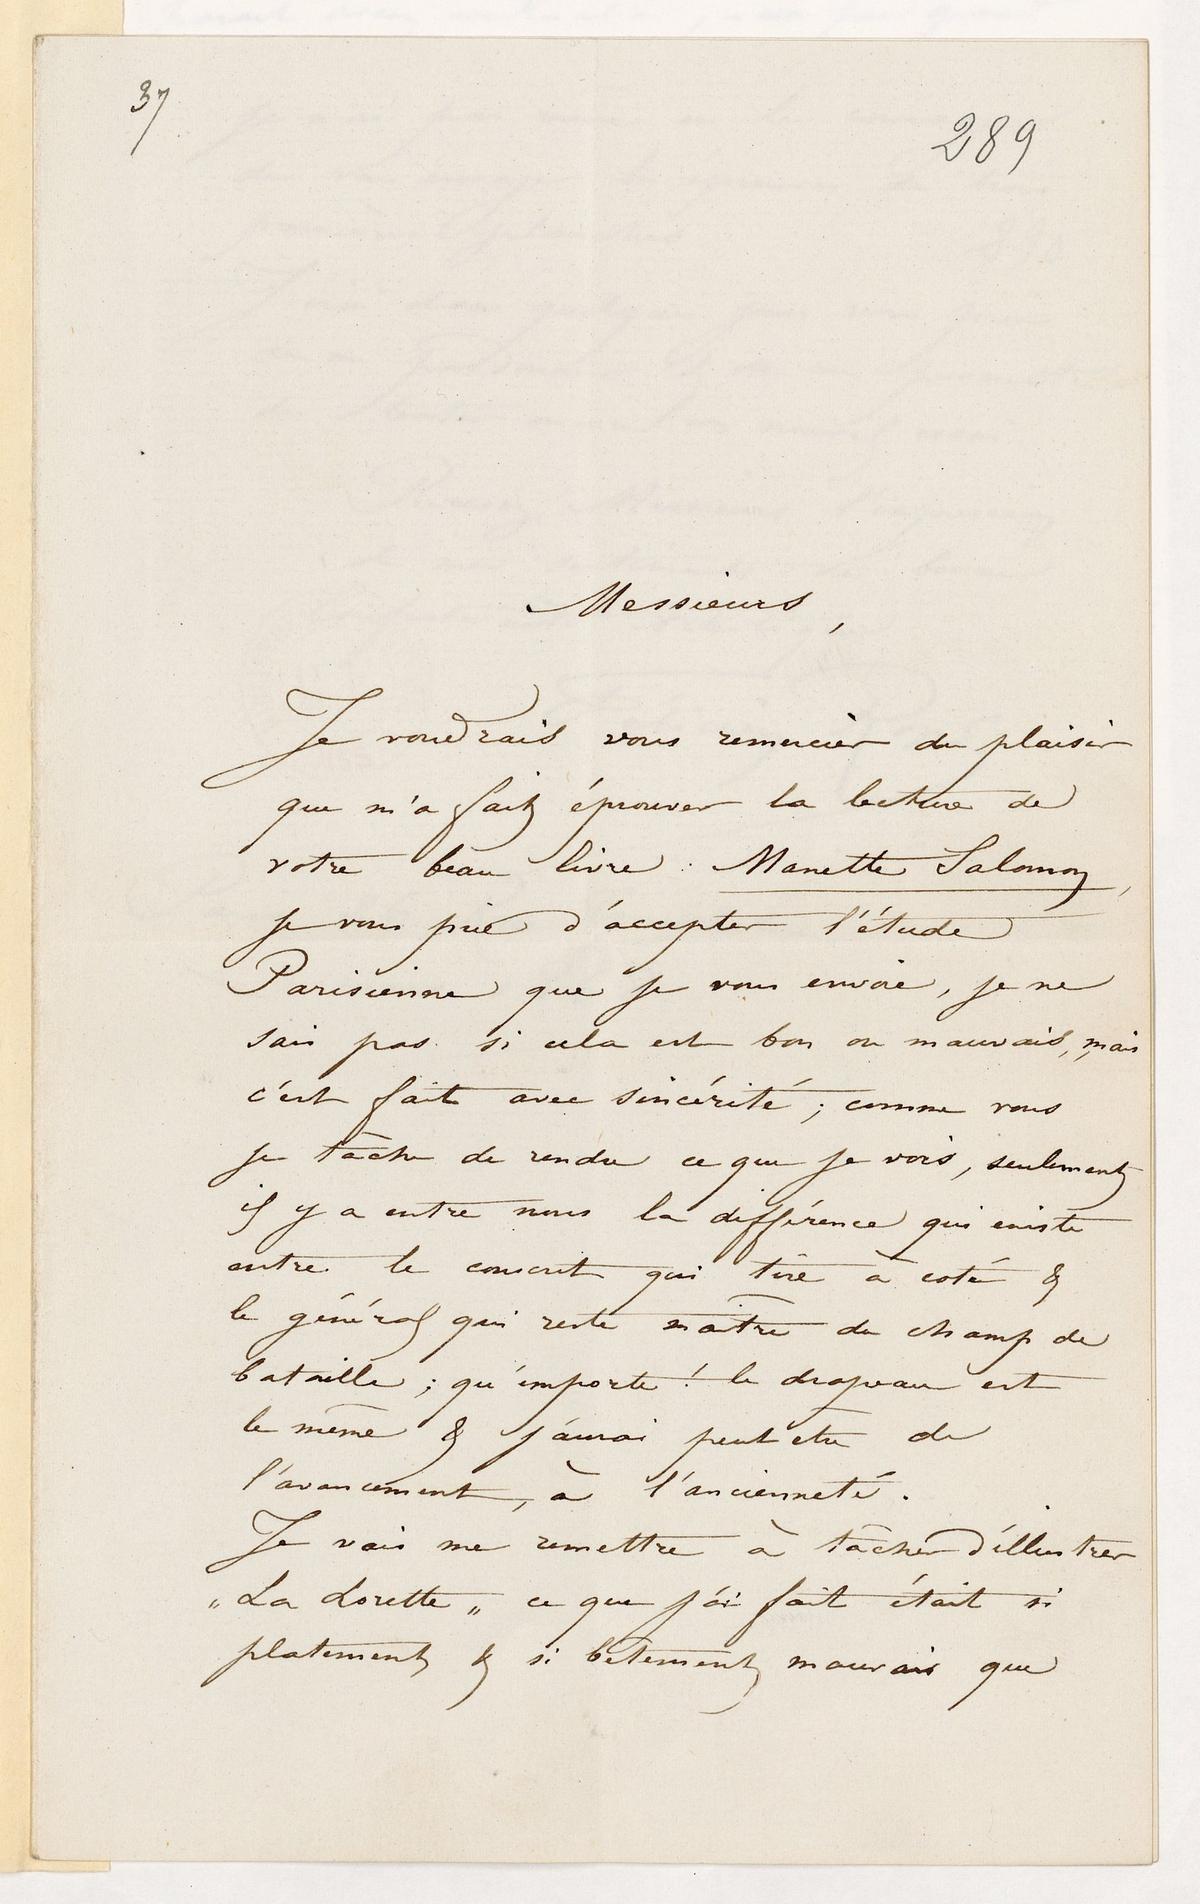 37
289
Messieurs,
Je voudrais vous remercier du plaisir
que m'a fait éprouver la lecture de
votre beau livre : Manette Salomon,
je vous prie d'accepter l'étude
Parisienne que je vous envoie, je ne
sais pas si cela est bon ou mauvais, mais
c'est fait avec sincérité ; comme vous
je tâche de rendre ce que je vois, seulement
il y a entre nous la différence qui existe
entre le conscrit qui tire à coté &
le général qui reste maître du champ de
bataille ; qu'importe ! le drapeau est
le même & j'aurai peut etre de
l'avancement, à l'ancienneté.
Je vais me remettre à tâcher d'illustrer
„ La Lorette „ ce que j'ai fait était si
platement & si bêtement mauvais que